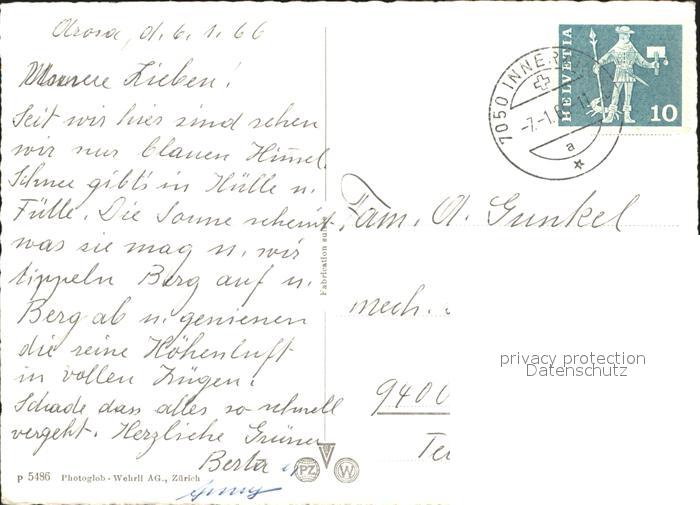 Arosa, d. 6. 1. 66
Unsere Lieben!
Seit wir hier sind sehen
wir nur blauen Himmel.
Schnee gibt's in Hülle u.
Fülle. Die Sonne scheint
was sie mag u. wir
tippeln Berg auf u.
Berg ab u. geniessen
die reine Höhenluft
in vollen Zügen.
Schade dass alles so schnell
vergeht. Herzliche Grüsse
Berta
p 5486 Photoglob-Wehrli AG., Zürich
PZ W
Fabrication suisse
HELVETIA
10
7050 INNER
-7.-1.
a
Fam. A. Gunkel
mech.
9400
privacy protection
Datenschutz